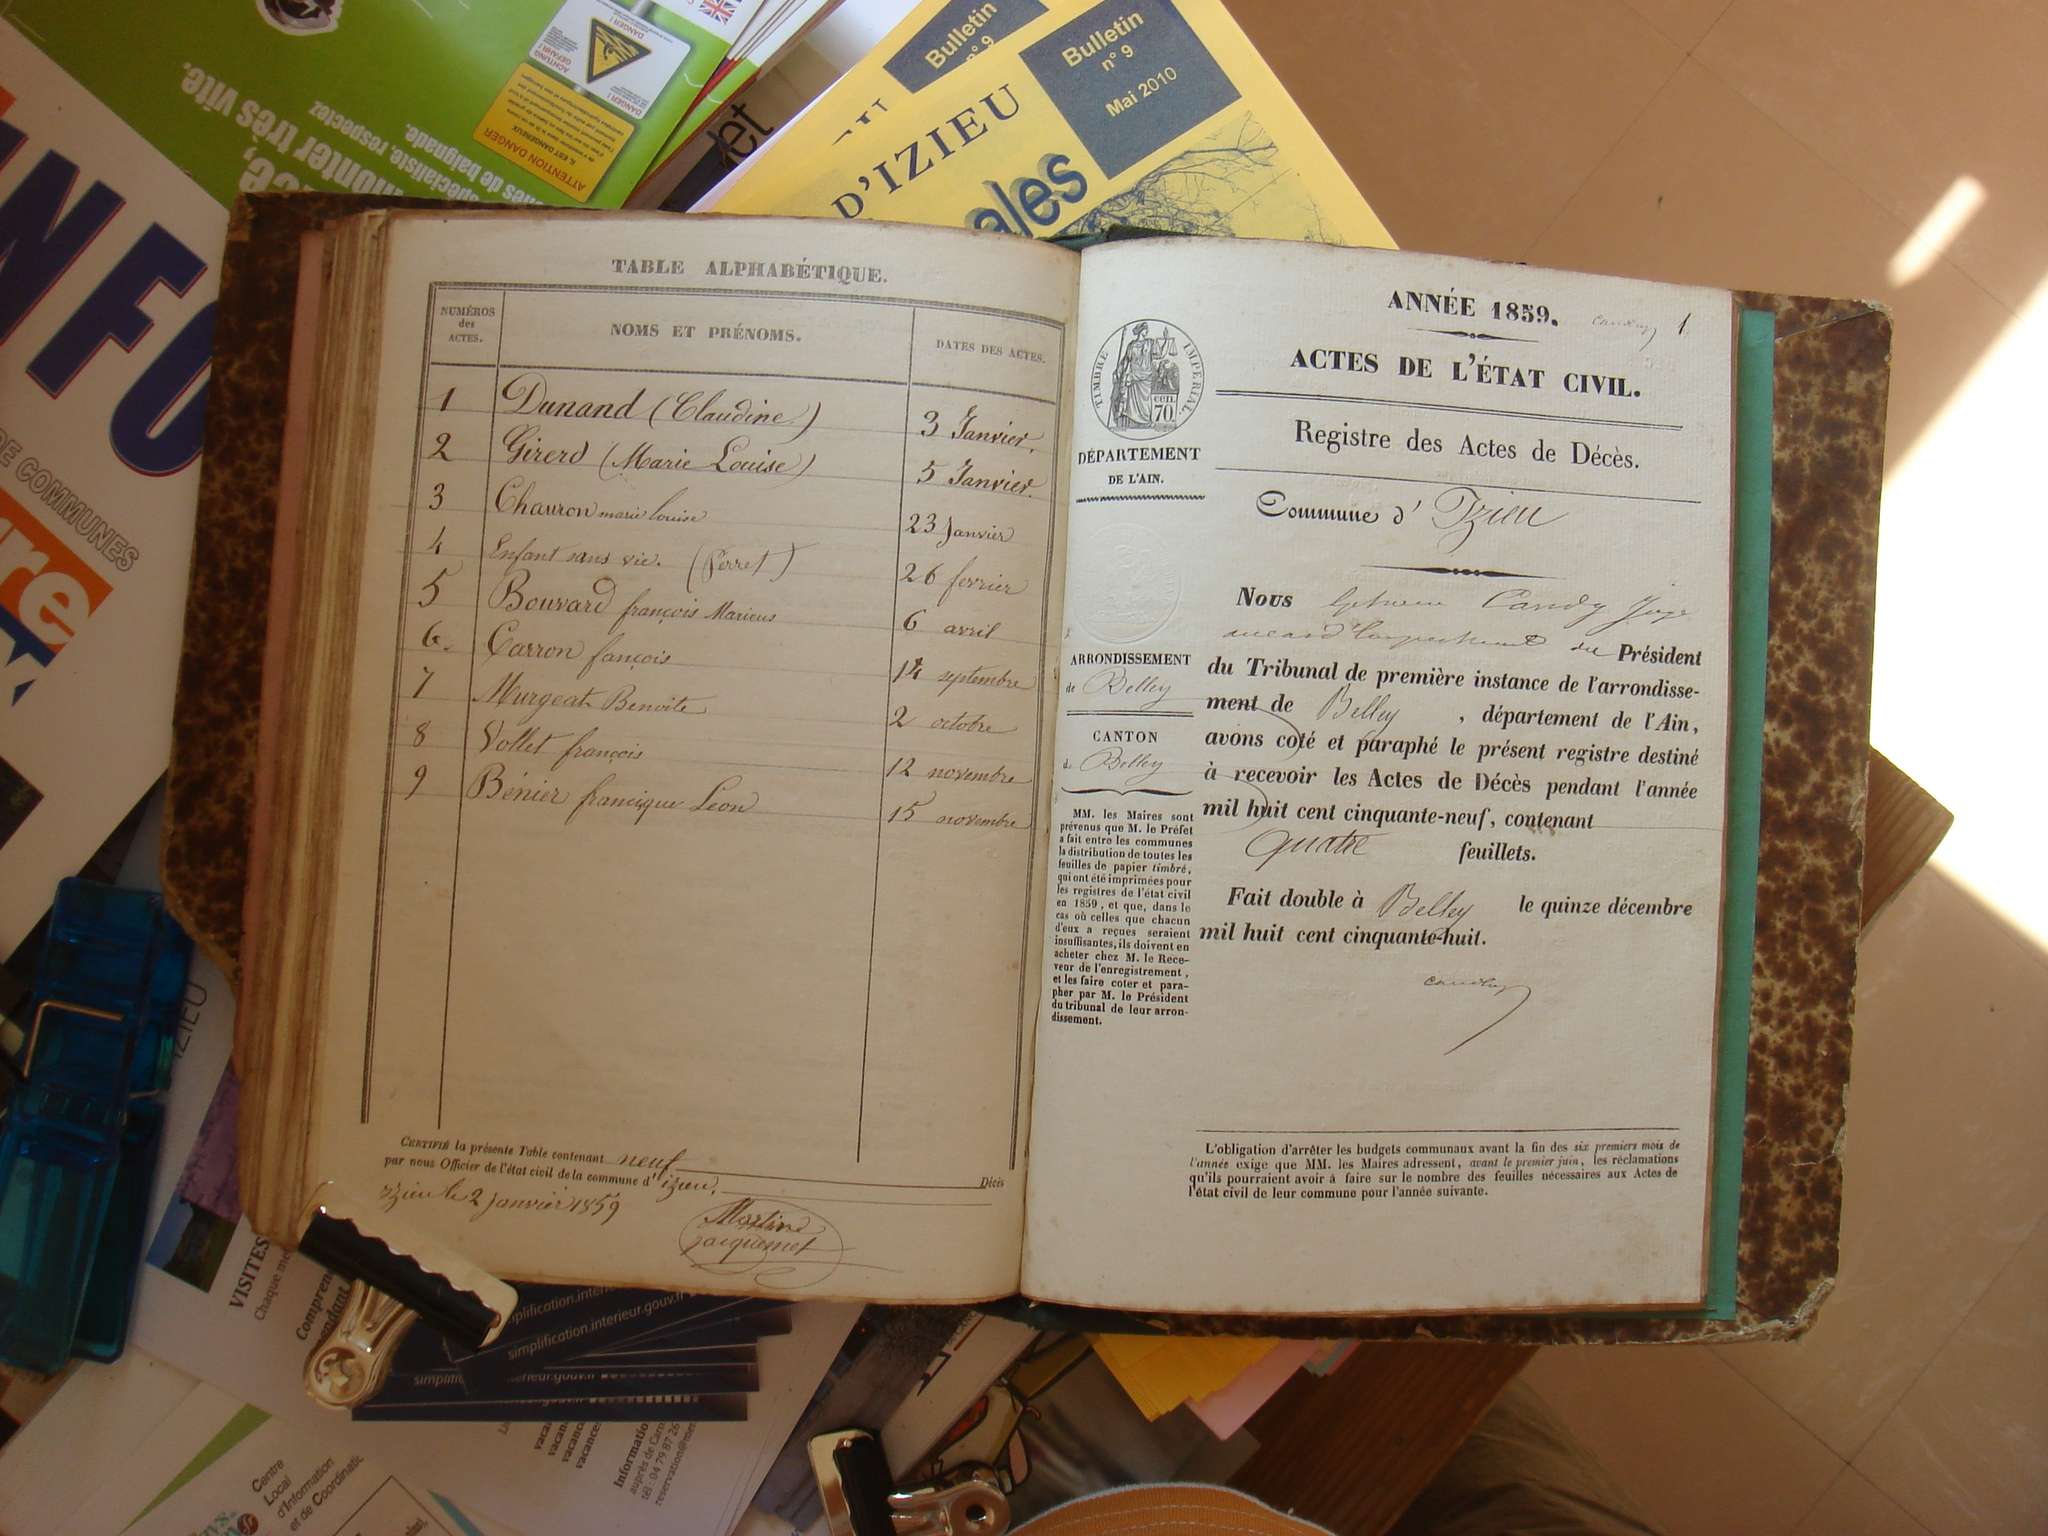 DANGER !
ACHTUNG GEFAHR !
ATTENTION DANGER
IL EST DANGEREUX
monter très vite.
spécialiste, respectez
de baignade.
INFO
DE COMMUNES
Bulletin
n° 9
Bulletin
n° 9
Mai 2010
D'IZIEU
ales
TABLE ALPHABÉTIQUE.
NUMÉROS
des
ACTES.
NOMS ET PRÉNOMS.
DATES DES ACTES.
1 Dunand (Claudine) 3 Janvier.
2 Girerd (Marie Louise) 5 Janvier.
3 Chauron marie louise 23 Janvier
4 Enfant sans vie. (Perret) 26 fevrier
5 Bouvard françois Marieus 6 avril
6 Carron fançois 14 septembre
7 Murgeat Benoite 2 octobre
8 Vollet françois 12 novembre
9 Bénier francique Leon 15 novembre
CERTIFIÉ la présente Table contenant neuf Décès
par nous Officier de l'état civil de la commune d' izieu.
izieu le 2 janvier 1859
Martin
Jacquemet
ANNÉE 1859. 1
ACTES DE L'ÉTAT CIVIL.
Registre des Actes de Décès.
Commune d' Izieu
TIMBRE IMPÉRIAL.
CEN.
70.
DÉPARTEMENT
DE L'AIN.
ARRONDISSEMENT
de Belley
CANTON
de Belley
MM. les Maires sont
prévenus que M. le Préfet
a fait entre les communes
la distribution de toutes les
feuilles de papier timbré,
qui ont été imprimées pour
les registres de l'état civil
en 1859, et que, dans le
cas où celles que chacun
d'eux a reçues seraient
insuffisantes, ils doivent en
acheter chez M. le Rece-
veur de l'enregistrement,
et les faire coter et para-
pher par M. le Président
du tribunal de leur arron-
dissement.
Nous Candy Juge
au cas d'empechement du Président
du Tribunal de première instance de l'arrondisse-
ment de Belley, département de l'Ain,
avons coté et paraphé le présent registre destiné
à recevoir les Actes de Décès pendant l'année
mil huit cent cinquante-neuf, contenant
quatre feuillets.
Fait double à Belley le quinze décembre
mil huit cent cinquante-huit.
L'obligation d'arrêter les budgets communaux avant la fin des six premiers mois de
l'année exige que MM. les Maires adressent, avant le premier juin, les réclamations
qu'ils pourraient avoir à faire sur le nombre des feuilles nécessaires aux Actes de
l'état civil de leur commune pour l'année suivante.
IZIEU
VISITES
Chaque me
Compren
pendant
simplification.interieur.gouv.fr
simplification.interieur.gouv.fr
Information
auprès de
tél : 04 79 87 26
reservation@
Centre
Local
d'Information
et de Coordinatio